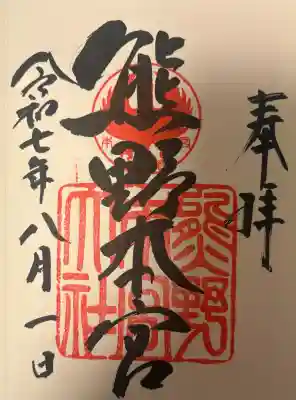 奉拝
熊野本宮
熊野本宮大社
令和七年八月一日